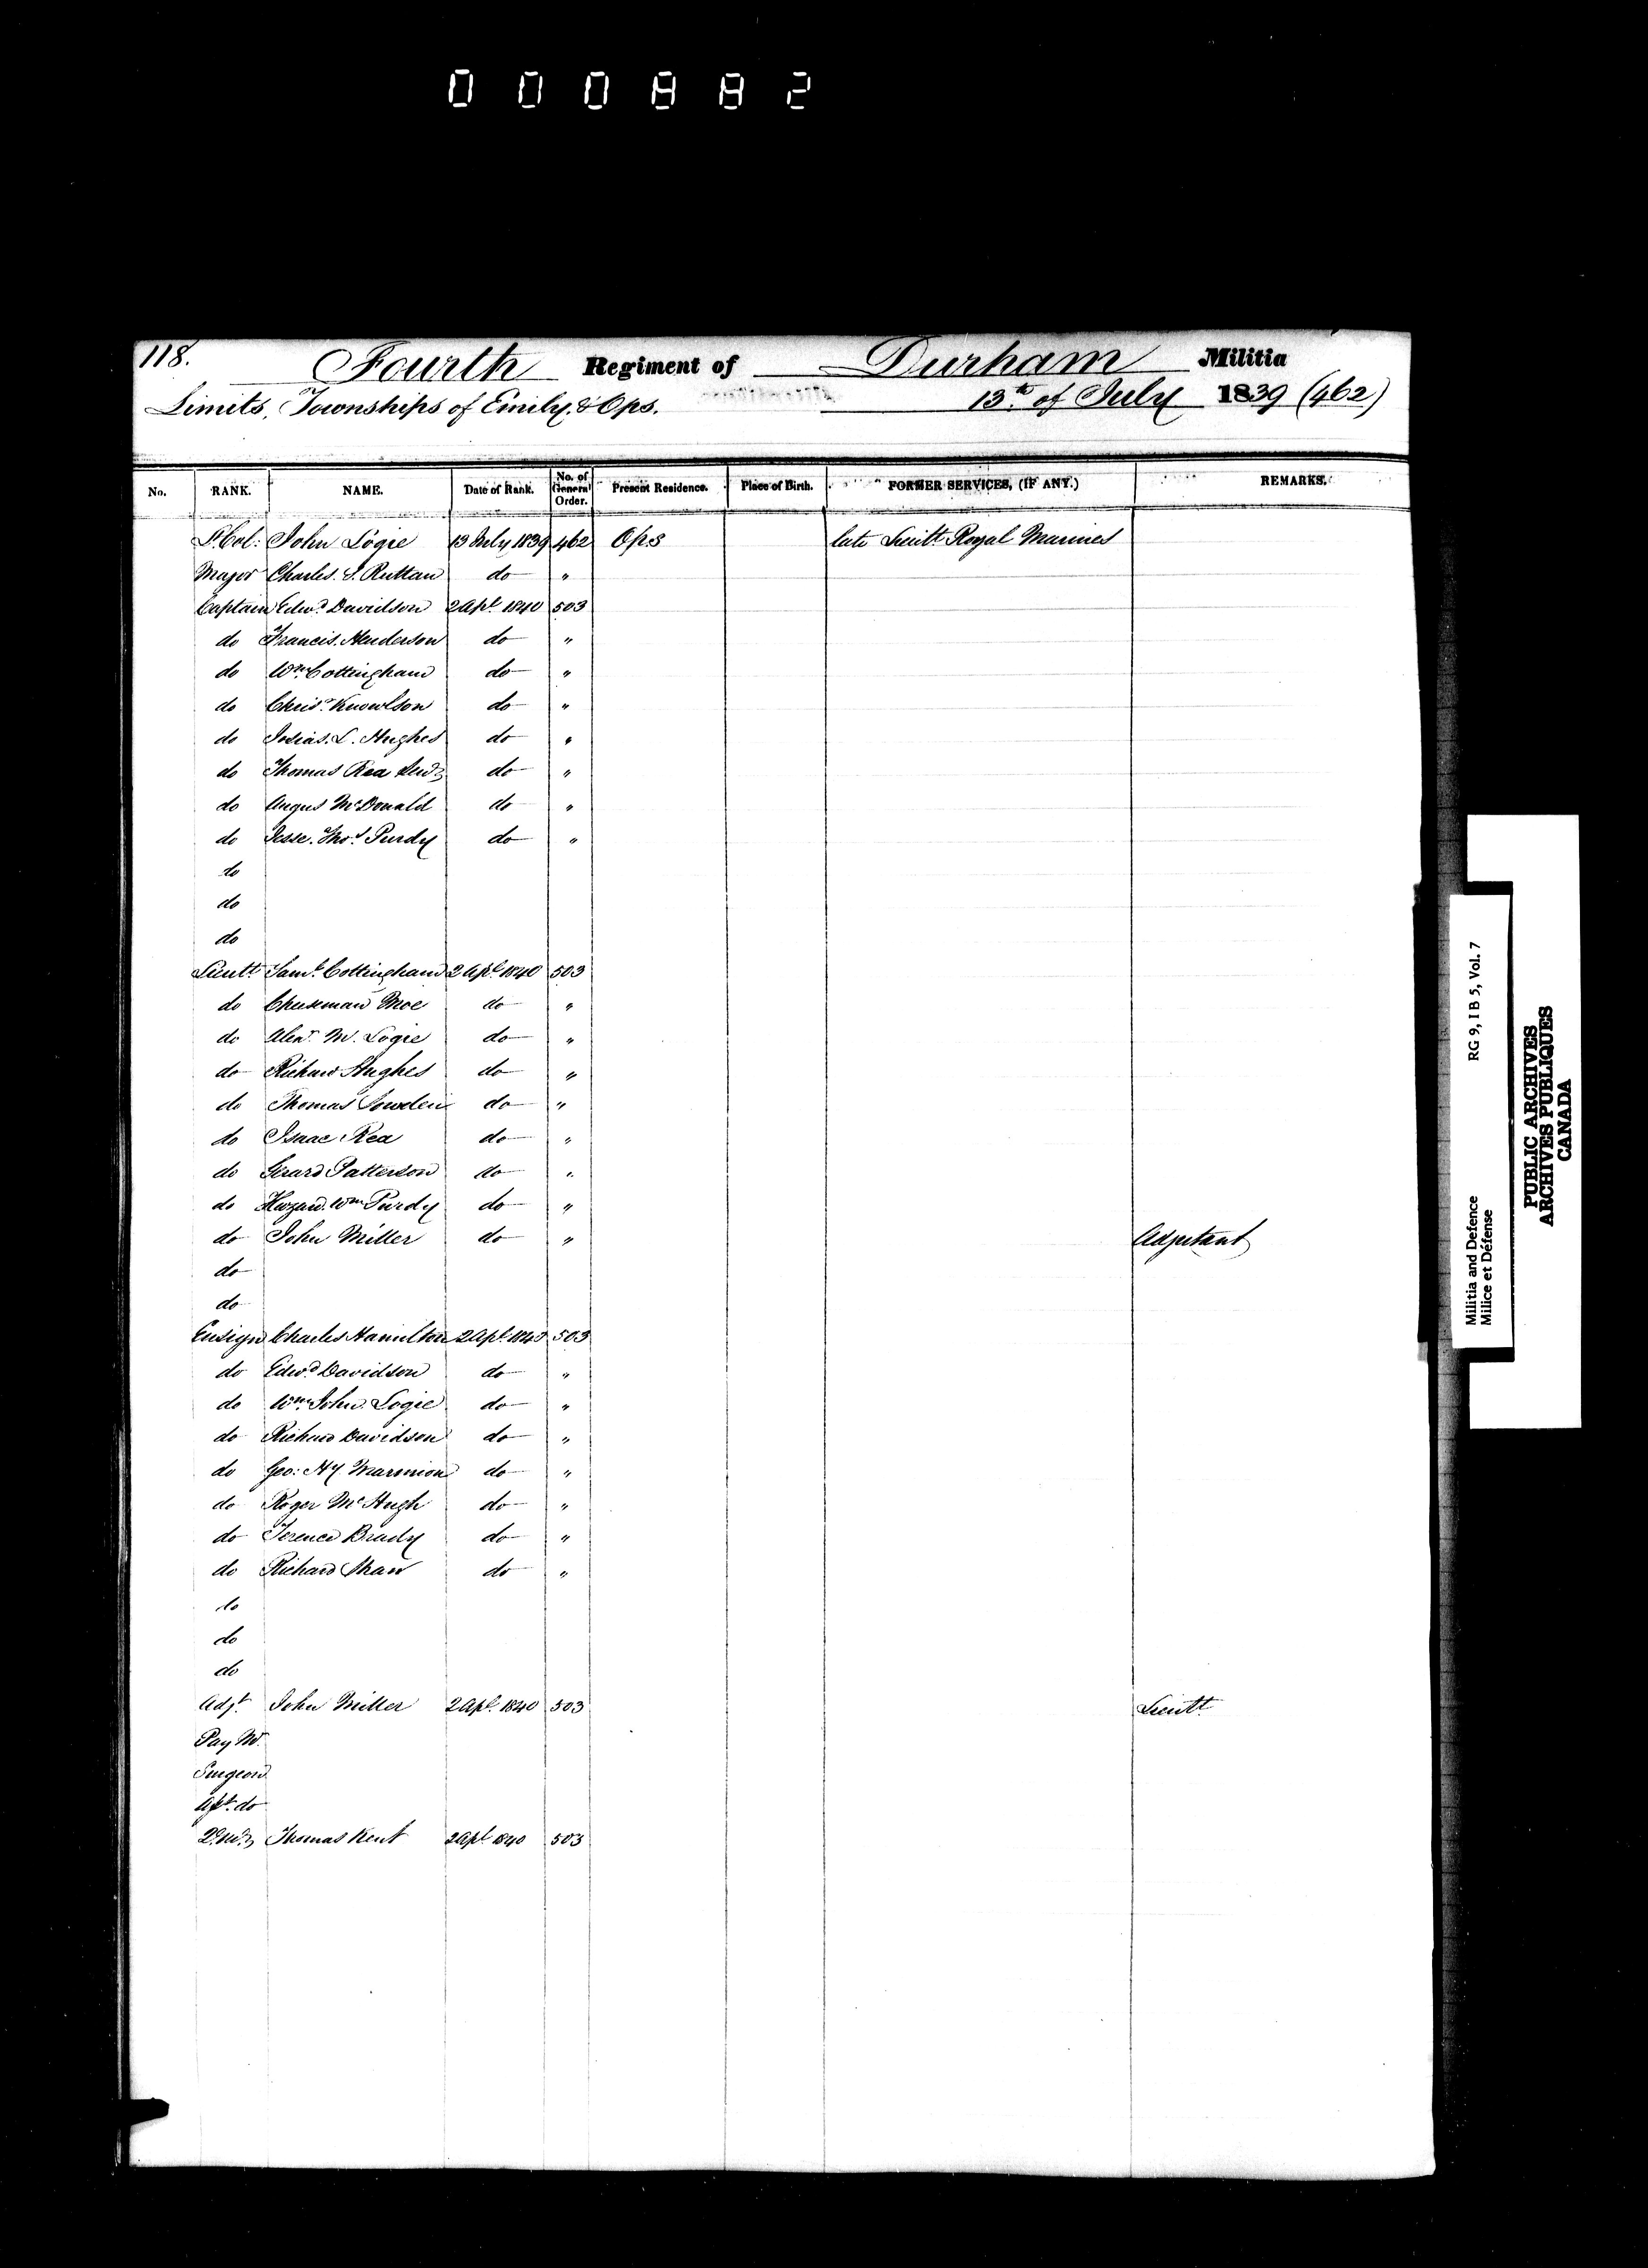 000882
118. Fourth Regiment of Durham Militia
Limits, Townships of Emily & Ops. 13th of July 1839 (462)
No. RANK. NAME. Date of Rank. No. of General Order. Present Residence. Place of Birth. FORMER SERVICES, (IF ANY.) REMARKS.
Lt. Col: John Logie 13 July 1839 462 Ops late Lieutt Royal Marines
Major Charles. S. Ruttan do "
Captain Edwd Davidson 2 Apl 1840 503
do Francis Henderson do "
do Wm Cottingham do "
do Chrisr Knowlson do "
do Josias. L. Hughes do "
do Thomas Rea do "
do Angus McDonald do "
do Jesse. Thos Purdy do "
do
do
do
Lieutt Saml Cottingham 2 Apl 1840 503
do Moe do "
do Alexr M. Logie do "
do Richard Hughes do "
do Thomas Sowden do "
do Isaac Rea do "
do Gerard Patterson do "
do Hazard Wm Purdy do "
do John Miller do " Adjutant
do
do
Ensign Charles Hamilton 2 Apl 1840 503
do Edwd Davidson do "
do Wm John Logie do "
do Richard Davidson do "
do Geo: Hy. Marmion do "
do Roger McHugh do "
do Terence Brady do "
do Richard Shaw do "
do
do
do
Adjt John Miller 2 Apl 1840 503 Lieutt
Pay Mr.
Surgeon
Asst. do
Qr. Mr. Thomas Kent 2 Apl 1840 503
RG 9, I B 5, Vol. 7
Militia and Defence
Milice et Défense
PUBLIC ARCHIVES
ARCHIVES PUBLIQUES
CANADA